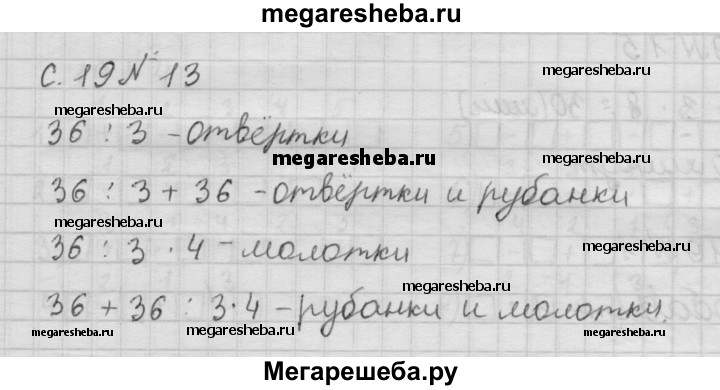 megaresheba.ru
с. 19 № 13
megaresheba.ru
megaresheba.ru
36 : 3 - отвёртки
megaresheba.ru
megaresheba.ru
36 : 3 + 36 - отвёртки и рубанки
megaresheba.ru
megaresheba.ru
36 : 3 · 4 - молотки
megaresheba.ru
36 + 36 : 3·4 - рубанки и молотки.
megaresheba.ru
megaresheba.ru
megaresheba.ru
Мегарешеба.ру